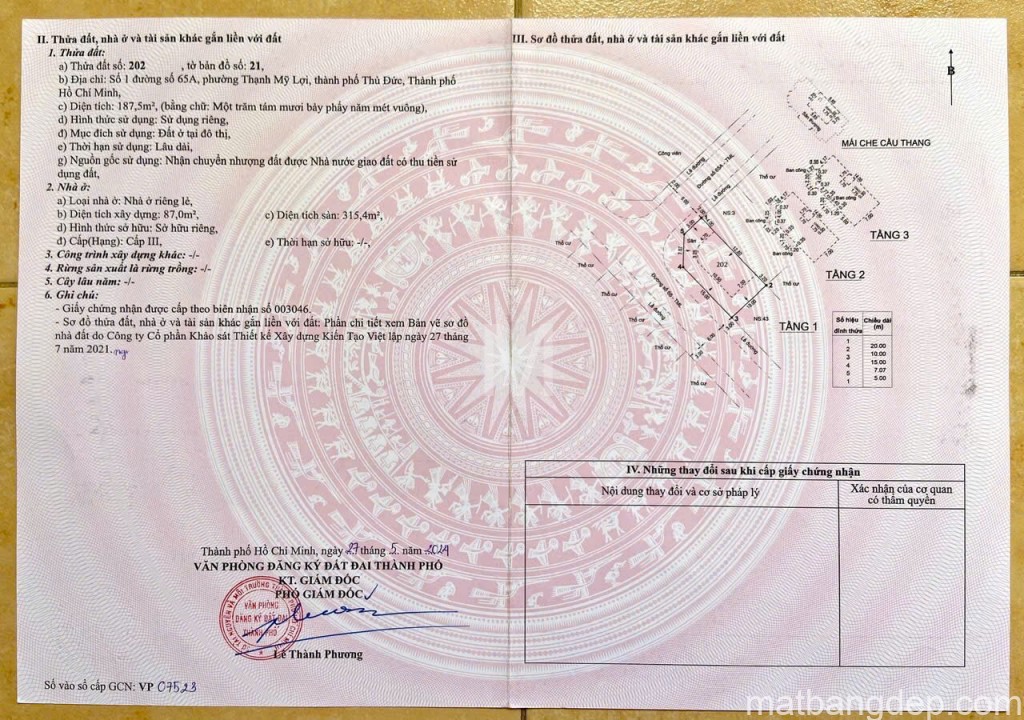 II. Thửa đất, nhà ở và tài sản khác gắn liền với đất
1. Thửa đất:
a) Thửa đất số: 202 , tờ bản đồ số: 21,
b) Địa chỉ: Số 1 đường số 65A, phường Thạnh Mỹ Lợi, thành phố Thủ Đức, Thành phố
Hồ Chí Minh,
c) Diện tích: 187,5m², (bằng chữ: Một trăm tám mươi bảy phẩy năm mét vuông),
d) Hình thức sử dụng: Sử dụng riêng,
đ) Mục đích sử dụng: Đất ở tại đô thị,
e) Thời hạn sử dụng: Lâu dài,
g) Nguồn gốc sử dụng: Nhận chuyển nhượng đất được Nhà nước giao đất có thu tiền sử
dụng đất,
2. Nhà ở:
a) Loại nhà ở: Nhà ở riêng lẻ,
b) Diện tích xây dựng: 87,0m², c) Diện tích sàn: 315,4m²,
d) Hình thức sở hữu: Sở hữu riêng,
đ) Cấp(Hạng): Cấp III, e) Thời hạn sở hữu: -/-,
3. Công trình xây dựng khác: -/-
4. Rừng sản xuất là rừng trồng: -/-
5. Cây lâu năm: -/-
6. Ghi chú:
- Giấy chứng nhận được cấp theo biên nhận số 003046.
- Sơ đồ thửa đất, nhà ở và tài sản khác gắn liền với đất: Phần chi tiết xem Bản vẽ sơ đồ
nhà đất do Công ty Cổ phần Khảo sát Thiết kế Xây dựng Kiến Tạo Việt lập ngày 27 tháng
7 năm 2021.
Thành phố Hồ Chí Minh, ngày 27 tháng 5 năm 2024
VĂN PHÒNG ĐĂNG KÝ ĐẤT ĐAI THÀNH PHỐ
KT. GIÁM ĐỐC
PHÓ GIÁM ĐỐC
VĂN PHÒNG
ĐĂNG KÝ ĐẤT ĐAI
THÀNH PHỐ
Lê Thành Phương
Số vào sổ cấp GCN: VP 07523
III. Sơ đồ thửa đất, nhà ở và tài sản khác gắn liền với đất
B
MÁI CHE CẦU THANG
Công viên
Lề đường
Đường số 65A - TML
Lề đường
Thổ cư
Ban công
TẦNG 3
Ban công
TẦNG 2
NS:3
Sân
202
Thổ cư
Thổ cư
Thổ cư
Thổ cư
Thổ cư
Lề đường
Lề đường
NS:43
Thổ cư
Thổ cư
TẦNG 1
Số hiệu đỉnh thửa Chiều dài (m)
1
20.00
2
10.00
3
15.00
4
7.07
5
5.00
1
IV. Những thay đổi sau khi cấp giấy chứng nhận
Nội dung thay đổi và cơ sở pháp lý
Xác nhận của cơ quan
có thẩm quyền
matbangdep.com